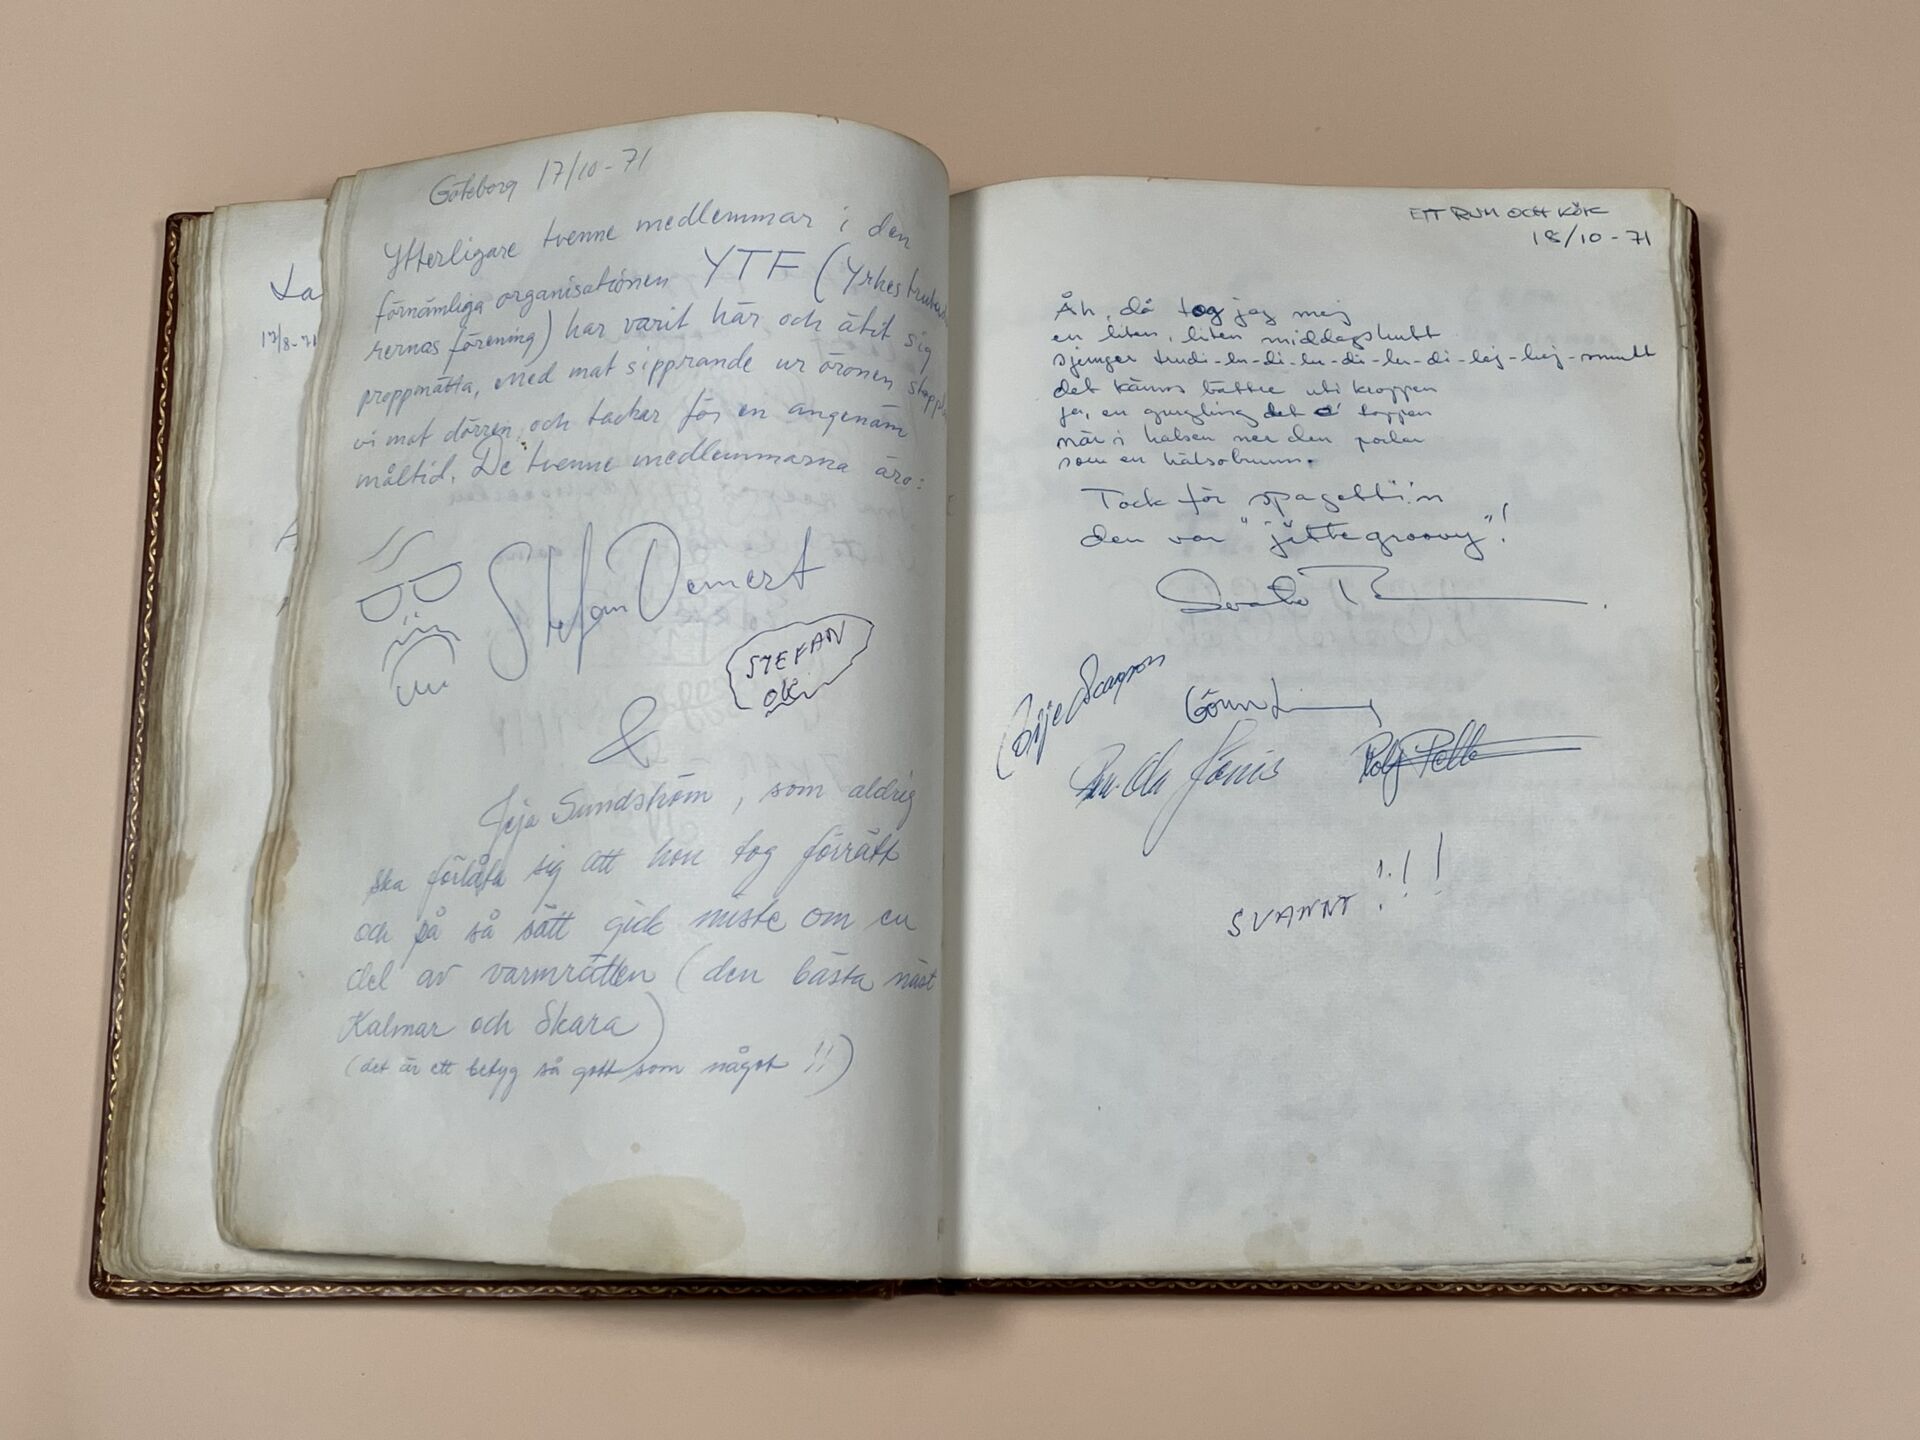 La
17/8-71
Göteborg 17/10-71
Ytterligare tvenne medlemmar i den
förnämliga organisationen YTF (Yrkestrubadu
rernas förening) har varit här och ätit sig
proppmätta. Med mat sipprande ur öronen stapplar
vi mot dörren och tacker för en angenäm
måltid. De tvenne medlemmarna äro:
Stefan Demert
STEFAN
OK
&
Jeja Sundström, som aldrig
ska förlåta sig att hon tog förrätt
och på så sätt gick miste om en
del av varmrätten (den bästa näst
Kalmar och Skara)
(det är ett betyg så gott som något !!)
ETT RUM OCH KÖK
18/10-71
Åh, då tog jag mej
en liten, liten middagshutt
sjunger trudi-lu-di-lu-di-lu-di-lej-hej-smutt
det känns bättre uti kroppen
ja, en gurgling det é toppen
när i halsen ner den porlar
som en hälsobrunn.
Tack för spagetti'n
den var "jättegroovy"!
Göran
Rolf
SVANTE !!!